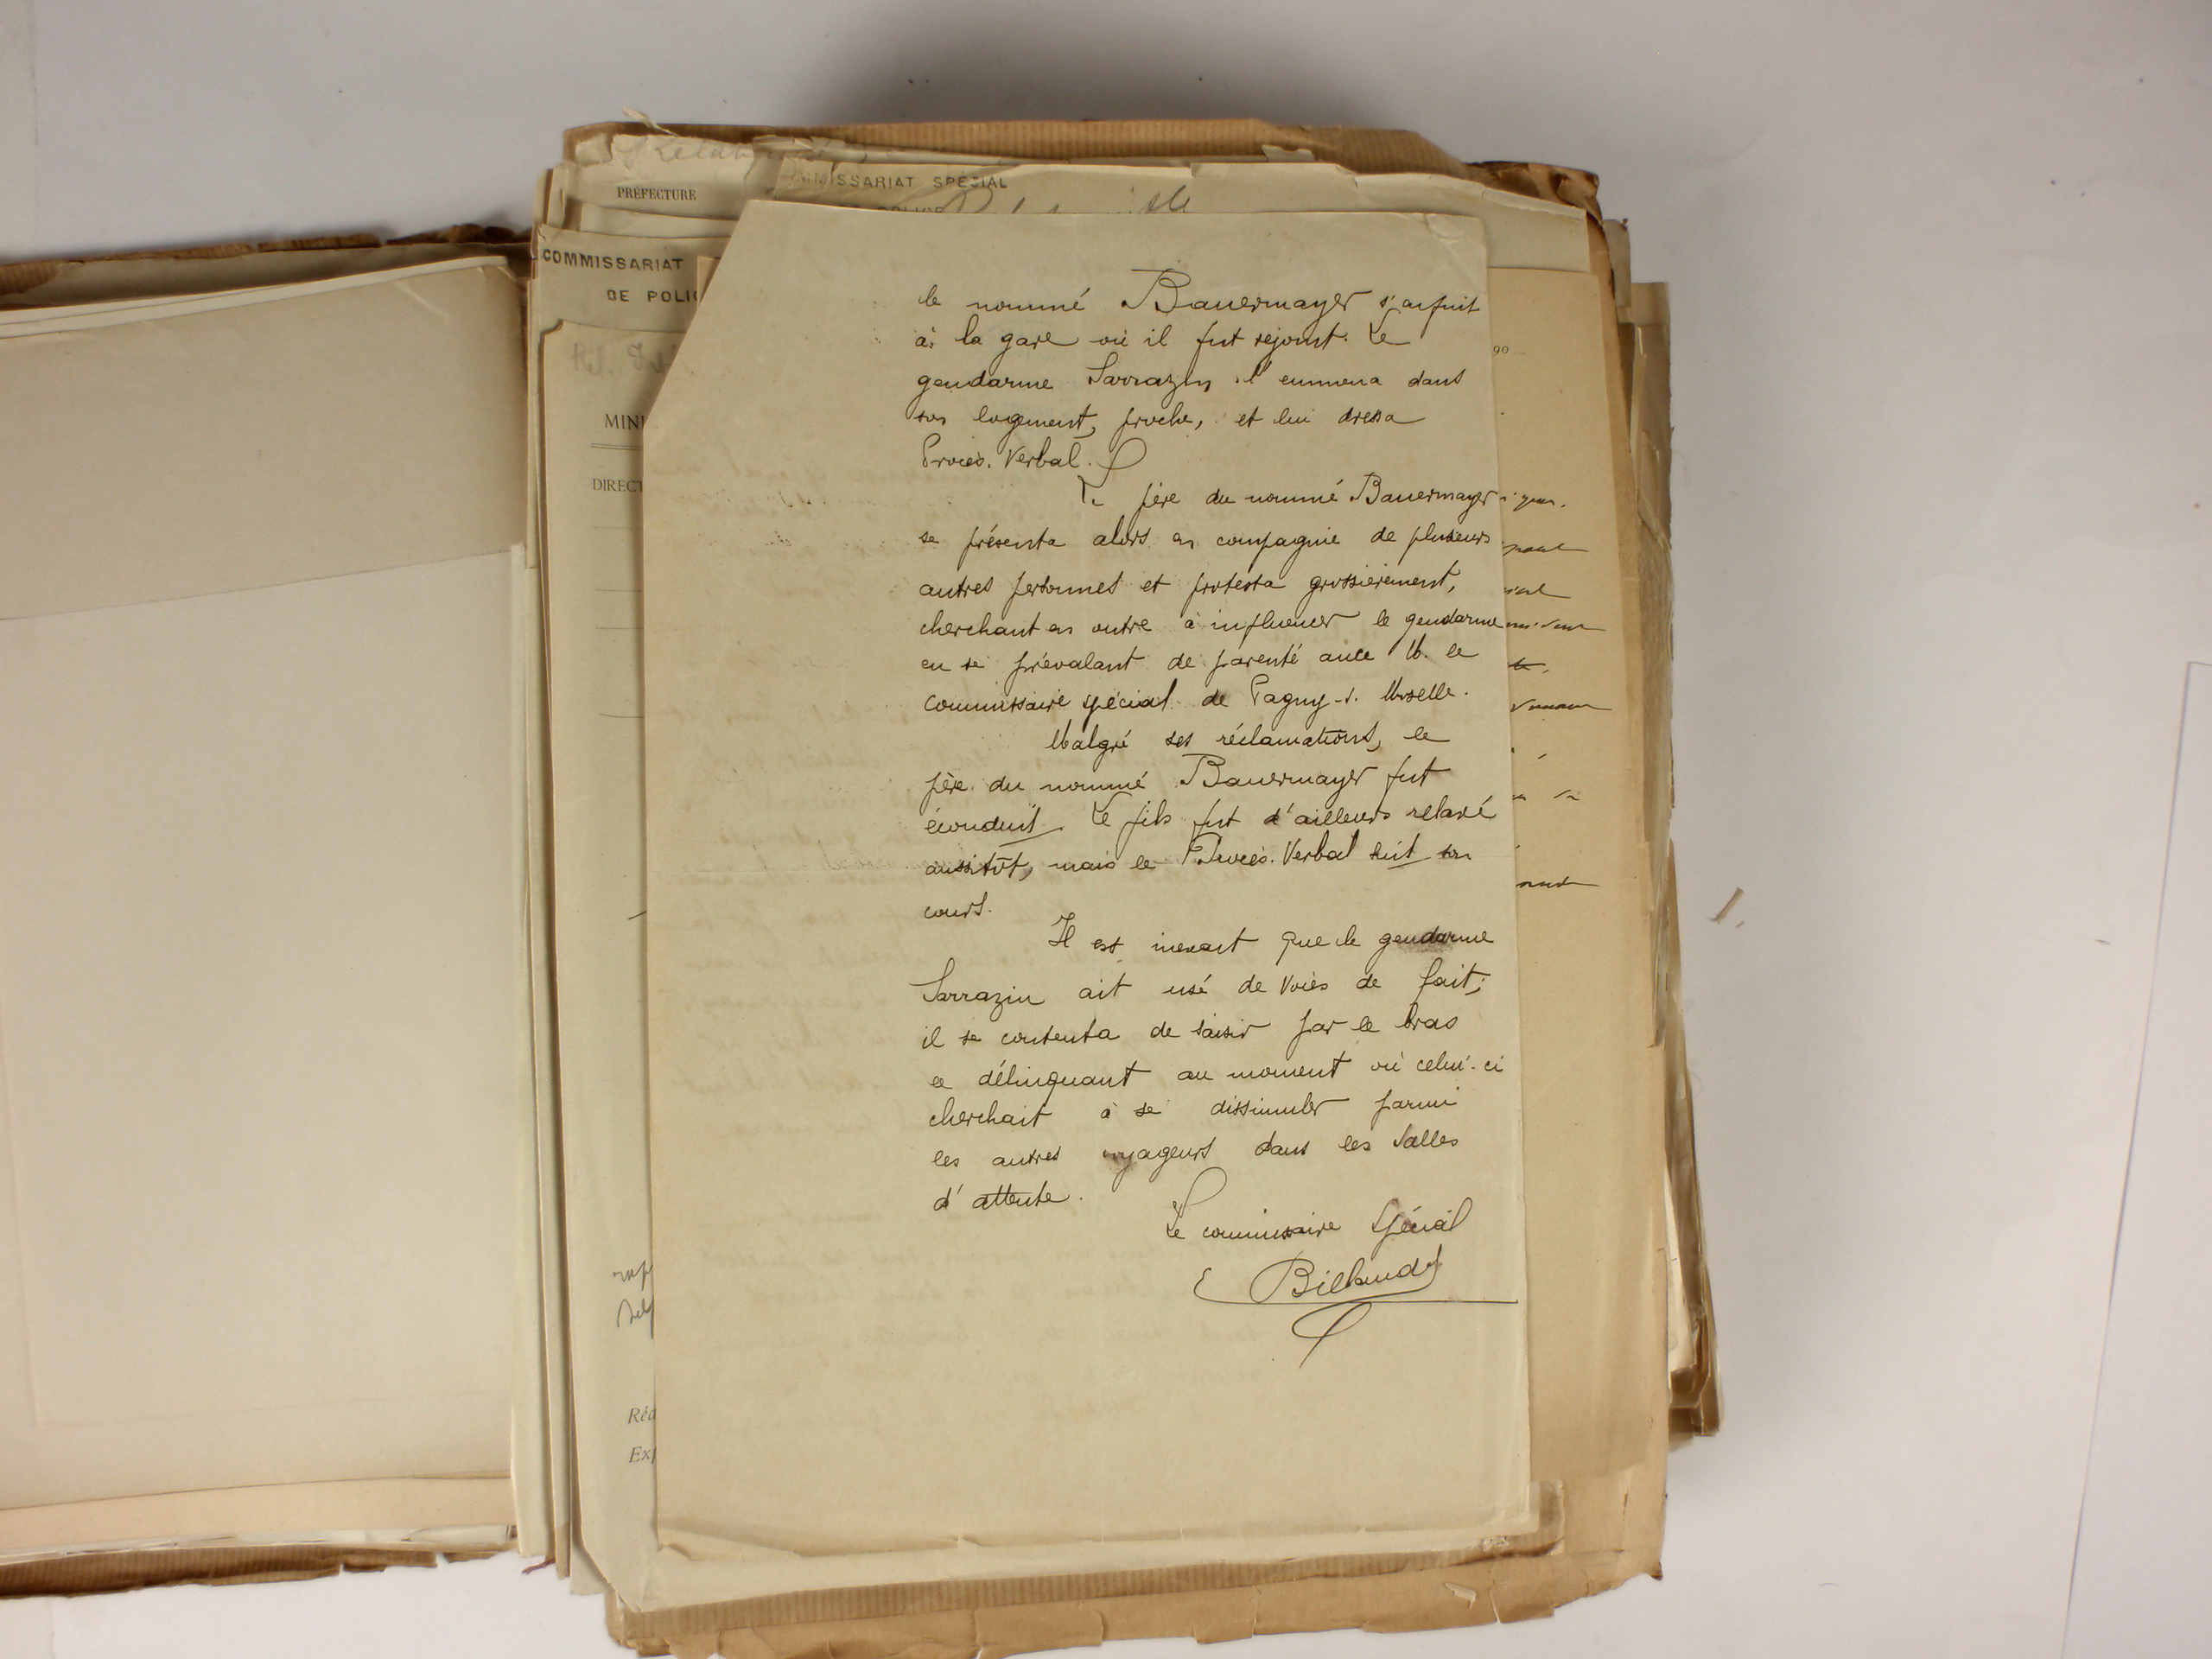 PRÉFECTURE
COMMISSARIAT SPÉCIAL
COMMISSARIAT
DE POLI
MINI
DIRECT
le nommé Bauermayer s'enfuit
à la gare où il fut rejoint. Le
gendarme Sarrazin l'emmena dans
son logement, proche, et lui dressa
Procès-Verbal.
Le père du nommé Bauermayer
se présenta alors en compagnie de plusieurs
autres personnes et protesta grossièrement,
cherchant en outre à influencer le gendarme
en se prévalant de parenté avec M. le
Commissaire spécial de Pagny-s. Moselle.
Malgré ses réclamations, le
père du nommé Bauermayer fut
éconduit. Le fils fut d'ailleurs relaxé
aussitôt, mais le Procès-Verbal suit son
cours.
Il est inexact que le gendarme
Sarrazin ait usé de voies de fait;
il se contenta de saisir par le bras
le délinquant au moment où celui-ci
cherchait à se dissimuler parmi
les autres voyageurs dans les salles
d'attente.
Le commissaire Spécial
Billaud
90
Réd
Exp